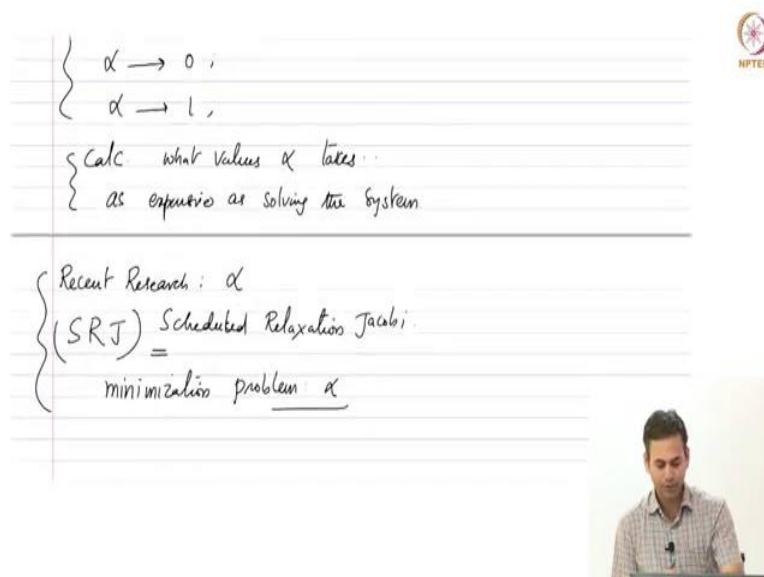 α → 0,
α → 1,
Calc. what values α takes..
as expensive as solving the system
Recent Research: α
(SRJ) Scheduled Relaxation Jacobi.
minimization problem α
NPTEL